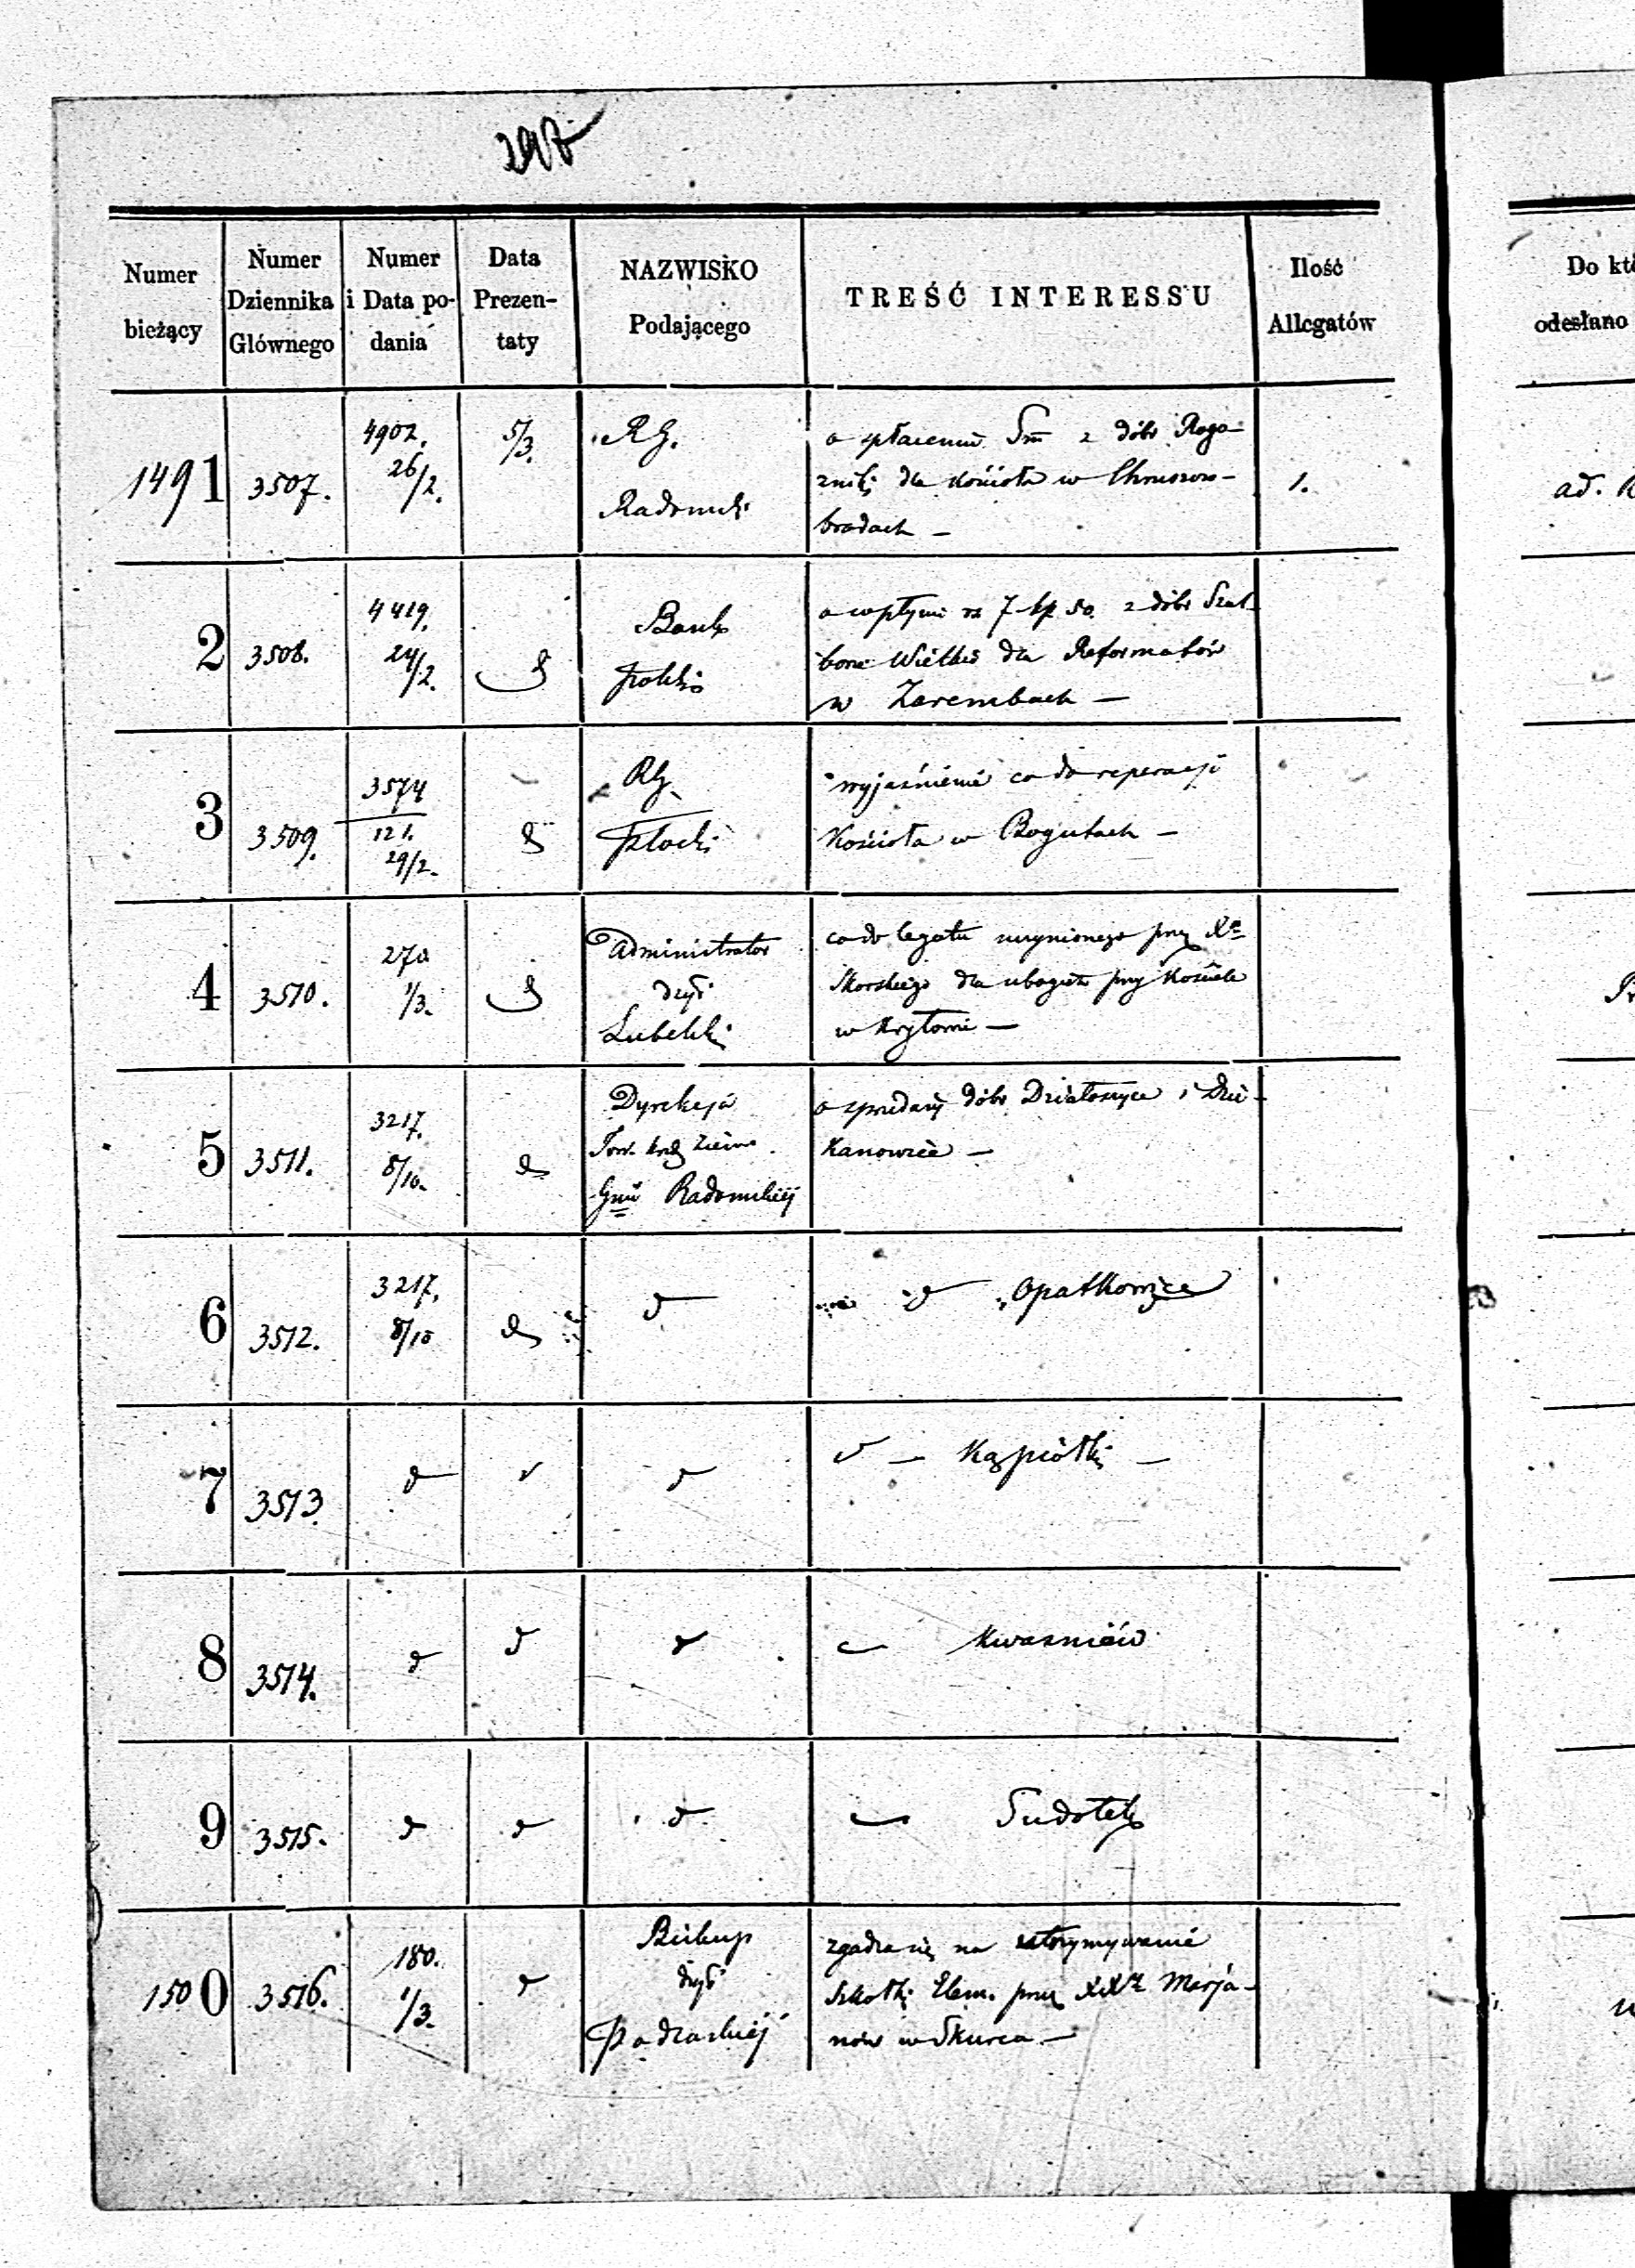 Numer bieżący
Numer Dziennika Głównego
Numer i Data podania
Data Prezentaty
NAZWISKO Podającego
TREŚĆ INTERESSU
Ilość Allegatów
Do któ
odesłano
1491
3507.
4902.
26/2.
5/3.
RG.
Radomski
o spłaceniu Sm z dóbr Roga-
źnik dla kościoła w
brodach —
1.
ad.
2
3508.
4419.
24/2.
Bank
Polski
o rs 7 kp 50. z dóbr Szal-
bone Wielkie dla Reformatów
w Zarembach —
3
3509.
3574
121.
29/2.
RG.
Płocki
wyjaśnienie co do reperacji
Kościoła w Bogutach —
4
3510.
270
1/3.
Administrator
dyi
Lubelski
co do legatu uczynionego przez Xa
Skorskiego dla ubogich przy Kościele
w
5
3511.
3217.
8/10.
Dyrekcja
Tow. kred Ziem.
Gnii Radomskiej
o sprzedaży dóbr Działoszyce i Dzie-
kanowice —
6
3512.
3217.
8/10
d
d Opatkowice
7
3513.
d
d
d
d — Kąpiołki —
8
3514.
d
d
d
Kwasniów
9
3515.
d
d
d
Sudołek
1500
3516.
180.
1/3.
d
Biskup
dyi
Podlaskiej
zgadza się na utrzymywanie
Szkołki Elem. przez XXy Marja-
nów w Skurca —